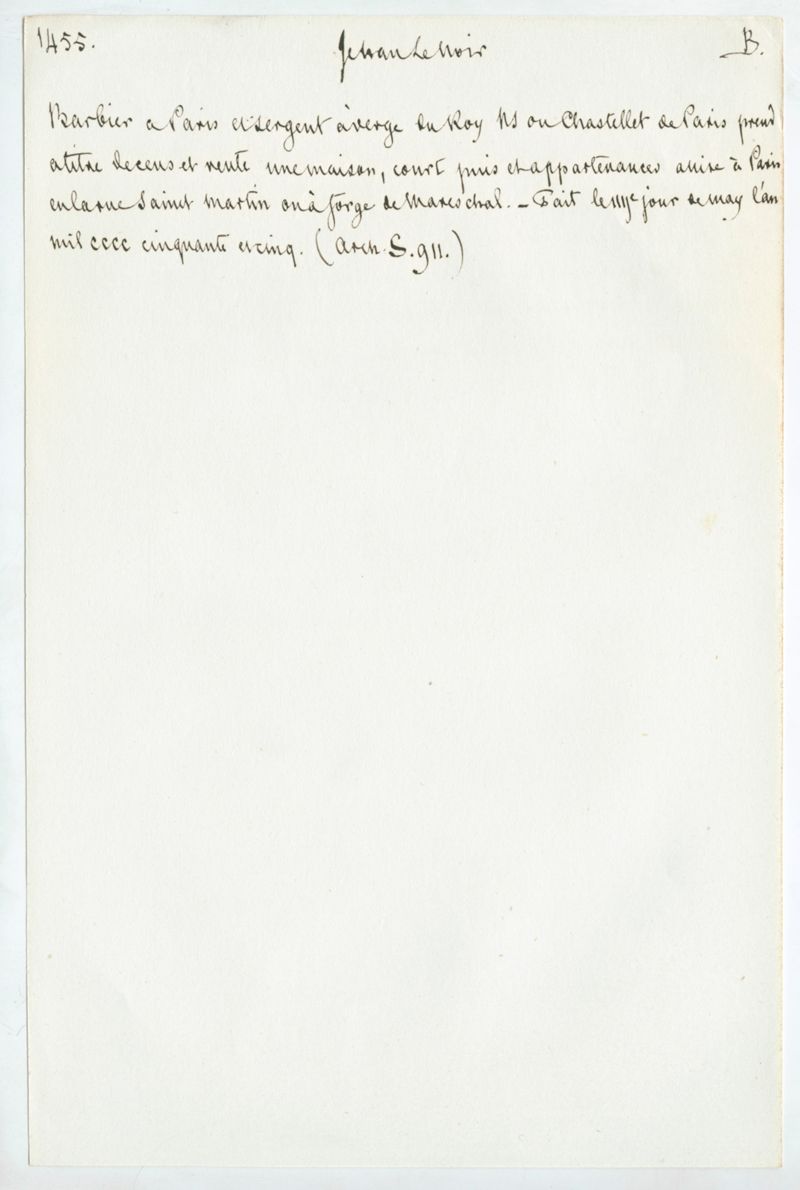 1455. Jehan Le Noir B.
Barbier a Paris et sergent à verge du Roy NS ou Chastellet de Paris prend
a titre de cens et rente une maison, court puis et appartenances assise à Paris
en la rue Saint Martin on à forge de Mareschal. - Fait le IIIe jour de may l'an
mil cccc cinquante et cinq. (Arch. S. 911.)